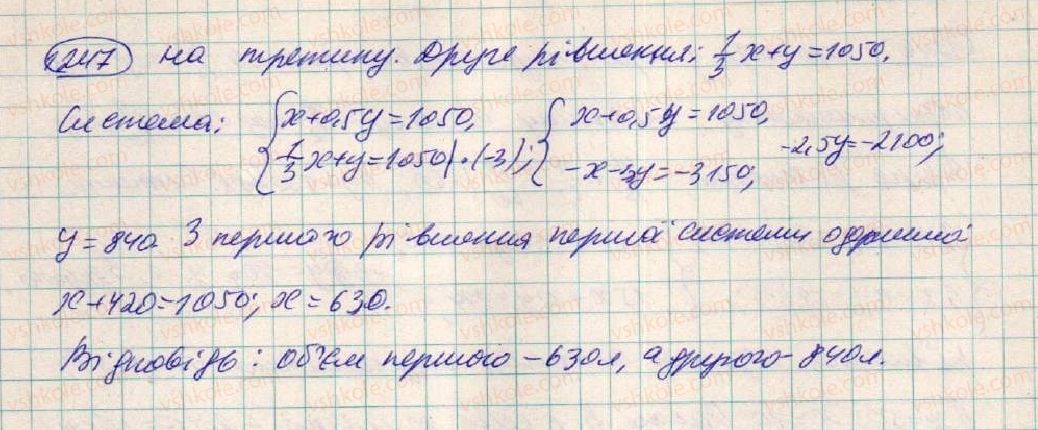 1247 на третину. Друге рівняння: 1/3 x+y=1050.
Система: { x+0,5y=1050, 1/3 x+y=1050 | ·(-3); { x+0,5y=1050, -x-3y=-3150; -2,5y=-2100;
y=840 З першого рівняння першої системи одержимо
x+420=1050; x=630.
Відповідь: об'єм першого - 630л, а другого - 840л.